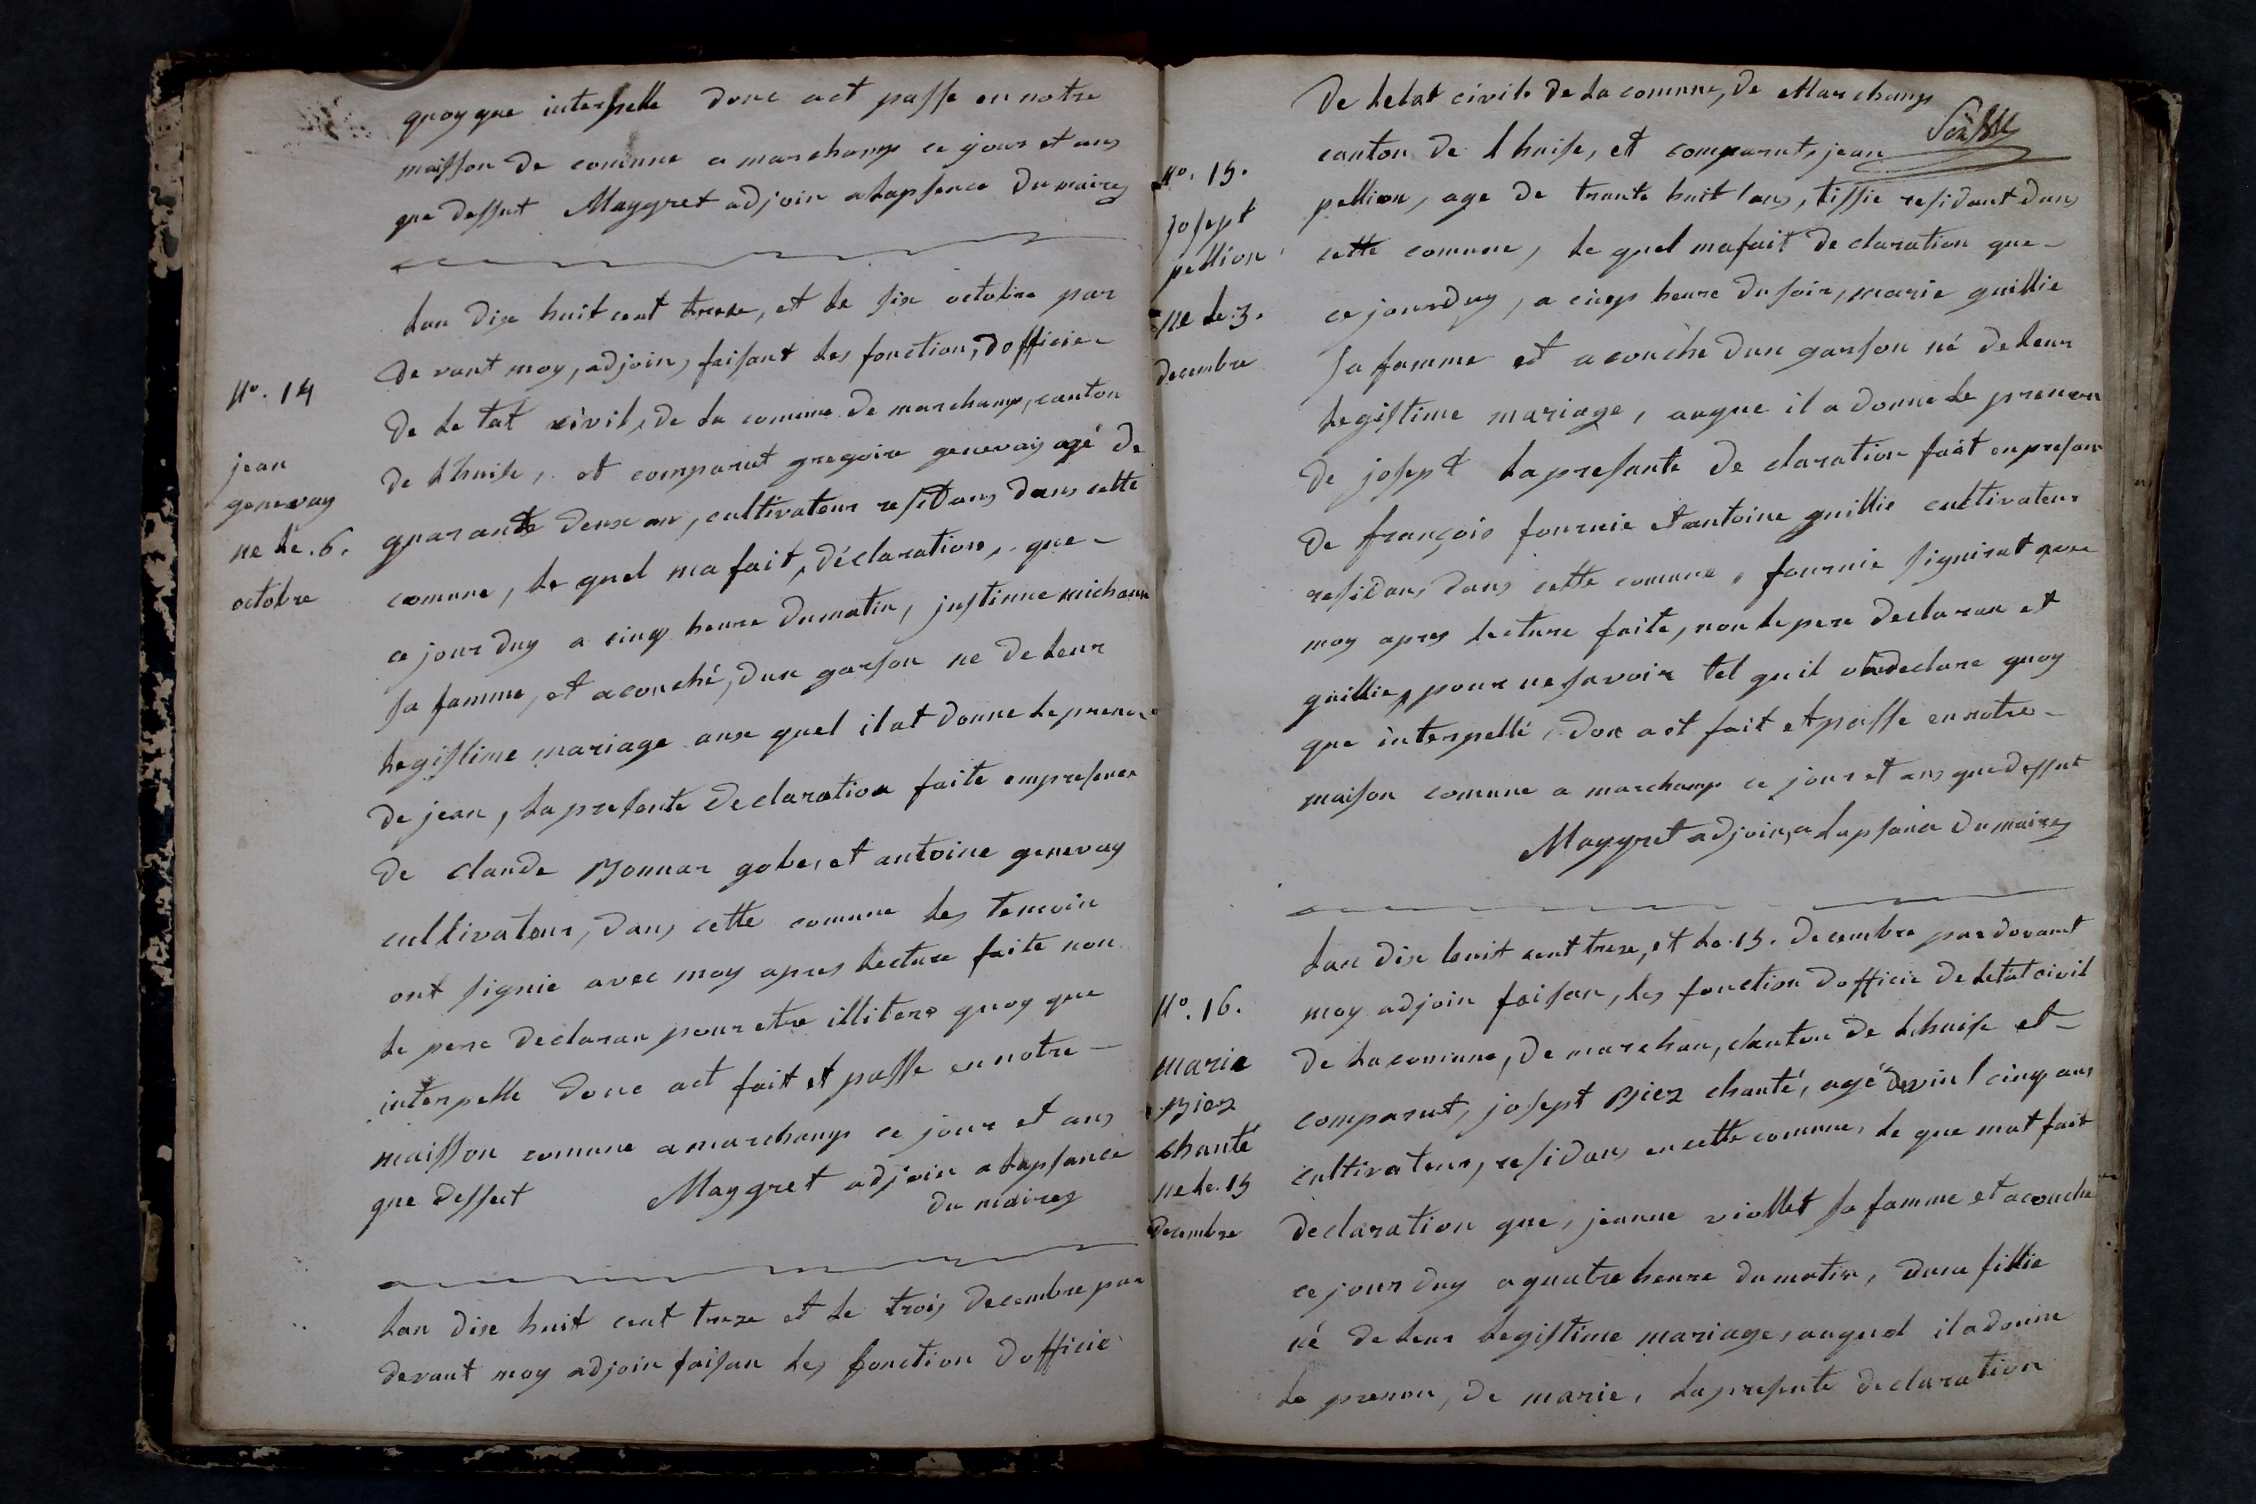 quoy que interpelle donc act passe en notre
maisson de comune a marchamp ce jour et ans
que dessut Maygret adjoin a lapsence du maires
Lan dix huit cent treze, et le six octobre par
devant moy, adjoin, faisant les fonction, dofficier
No. 14
de le tat civil, de la comune de marchamp, canton
jean
genevay
ne le. 6.
octobre
de Lhuise, et comparut gregoire genevay agé de
quarante deux an, cultivateur residans dans cette
comune, le quel ma fait, déclaration, que
ce jour duy a cinq heure du matin, justinne michaux
sa famme, et acouché, dun garson ne de leur
legistime mariage aux quel il at donne le prenom
de jean, la presente declaration faite empresence
de claude Bonnar gober et antoine genevay
cultivateur, dans cette comune les temoin
ont signie avec moy apres lecture faite non
le pere declaran pour etre illitere quoy que
interpelle donc act fait et passe en notre
maisson comune a marchamp ce jour et ans
que dessut Maygret adjoin a lapsance
du maires
Lan dix huit cent treze et le trois decembre par
devant moy adjoin faisan les fonction dofficié
de letat civile de la comune, de Marchamp
canton de Lhuise, et comparut, jean
No. 15.
josept
pellion
ne le 3.
decembre
pellion, age de trante huit ans, tissie residant dans
cette comune, le quel ma fait declaration que
ce jourduy, a cinq heure du soir, marie guillie
sa famme et acouché dun garson né de leur
legistime mariage, auque il a donne le prenom
de josept la presante declaration fait en presan
de françois fournie et antoine guillie cultivateur
residans dans cette comune, fournie signirat avec
moy apres lecture faite, non le pere declaran et
guillie, pour ne savoir tel quil on declare quoy
que interpellé, don act fait et passe en notre
maison comune a marchamp ce jour et ans que dessut
Maygret adjoin, a lapsance du maires
Lan dix huit cent treze, et le 15. decembre par devant
No. 16.
marie
Biez
chanté
ne le. 15
decembre
moy adjoin faisan, les fonction dofficie de letat civil
de la comune, de marchan, canton de Lhuise et
comparut, josept Biez chanté, agé de vin cinq ans
cultivateur, residans en cette comune, le que mat fait
declaration que, jeanne viollet sa famme et acouche
ce jour duy a quatre heure du matin, dune fillie
né de leur legistime mariage, auquel il a donne
le prenon, de marie, la presente declaration